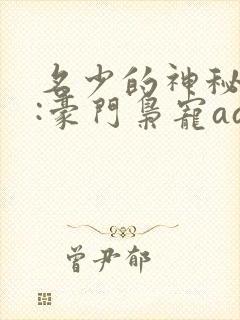 名少的神秘
:豪門梟寵ad
曾尹郁